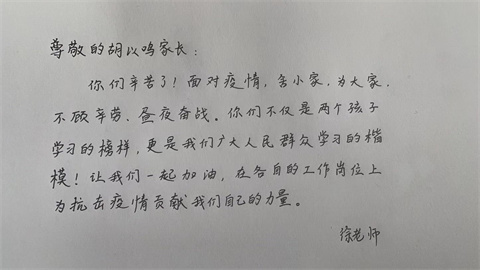 尊敬的胡以鸣家长：
你们辛苦了！面对疫情，舍小家，为大家，
不顾辛劳、昼夜奋战。你们不仅是两个孩子
学习的榜样，更是我们广大人民群众学习的楷
模！让我们一起加油，在各自的工作岗位上
为抗击疫情贡献我们自己的力量。
徐老师